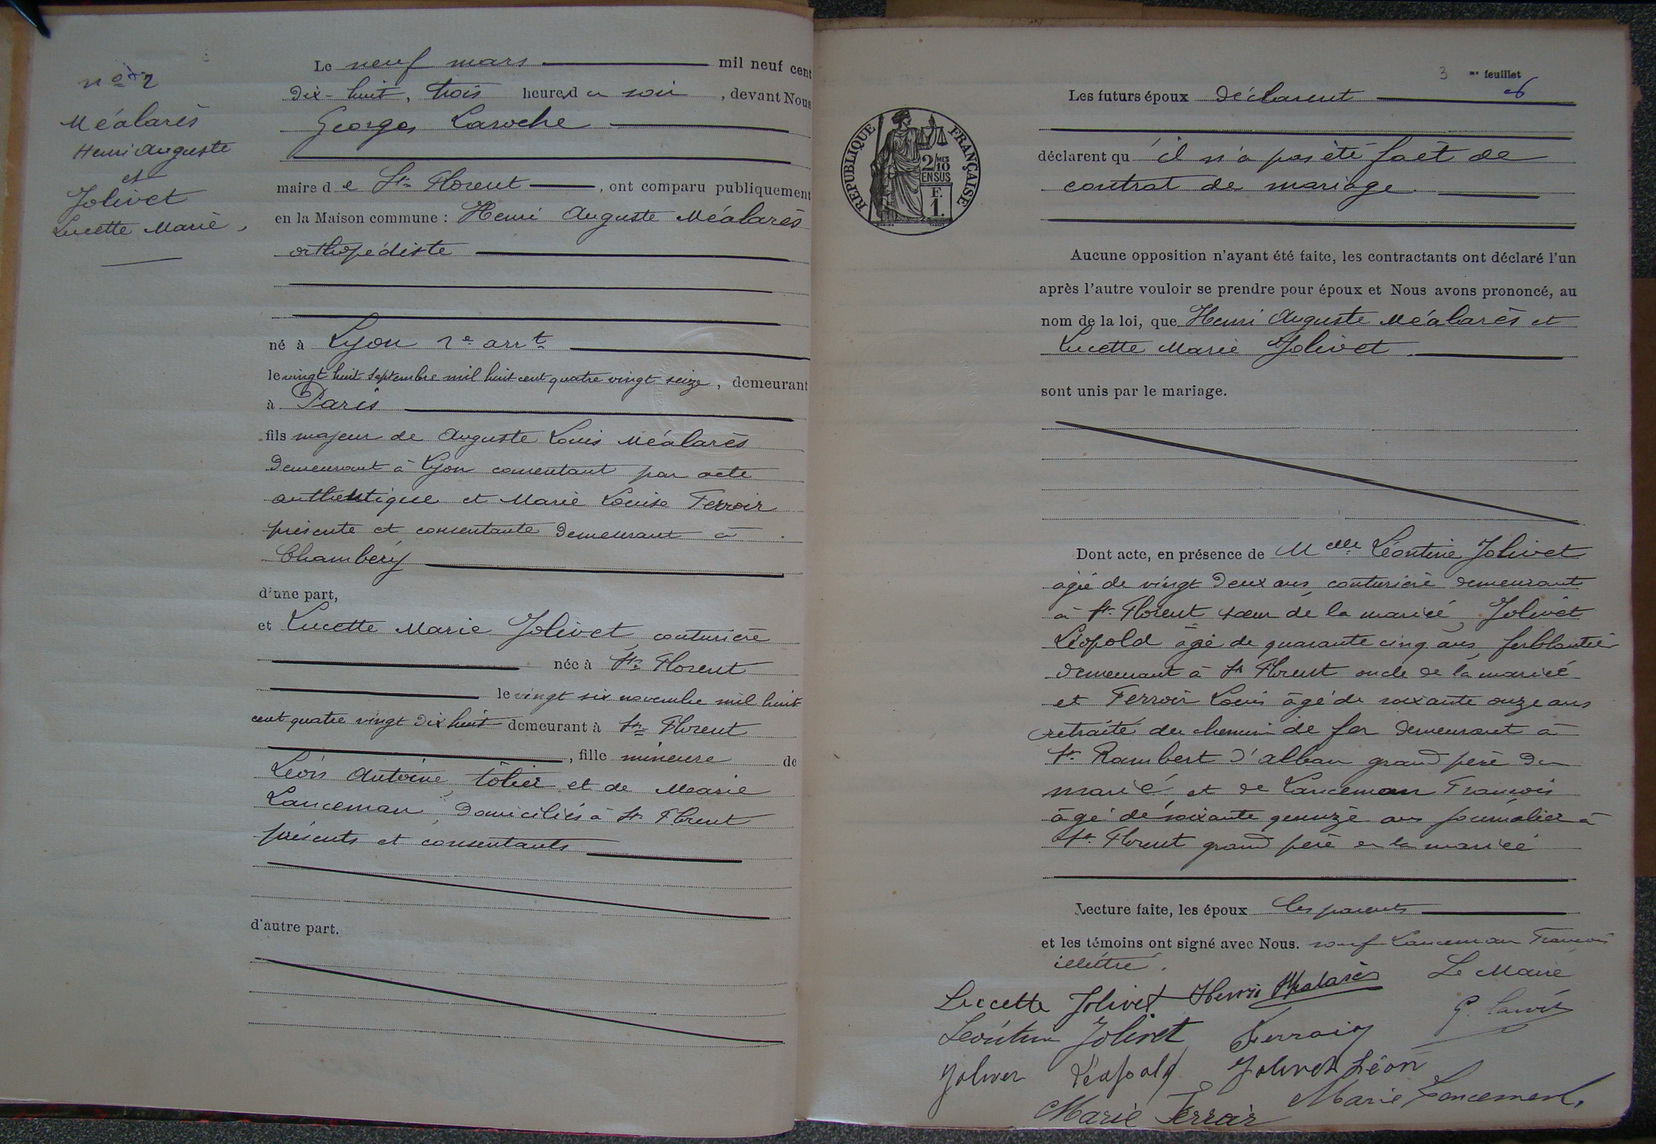 nº 2
Méalarès
Henri Auguste
et
Jolivet
Lucette Marie
Le neuf mars mil neuf cent
dix-huit, trois heures du soir, devant Nous
Georges Laroche
maire de St Florent, ont comparu publiquement
en la Maison commune : Henri Auguste Méalarès
orthopédiste
né à Lyon 2e arrt
le vingt huit septembre mil huit cent quatre vingt seize, demeurant
à Paris
fils majeur de Auguste Louis Méalarès
demeurant à Lyon consentant par acte
authentique et Marie Louise Ferroir
présente et consentante demeurant à
Chambéry
d'une part,
et Lucette Marie Jolivet couturière
née à St Florent
le vingt six novembre mil huit
cent quatre vingt dix huit demeurant à St Florent
, fille mineure de
Léon Antoine, tôlier et de Marie
Lanceman, domiciliés à St Florent
présents et consentants
d'autre part.
3 me feuillet
Les futurs époux déclarent
déclarent qu'il n'a pas été fait de
contrat de mariage.
REPUBLIQUE FRANÇAISE
2/10 MES
EN SUS
F.
1.
Aucune opposition n'ayant été faite, les contractants ont déclaré l'un
après l'autre vouloir se prendre pour époux et Nous avons prononcé, au
nom de la loi, que Henri Auguste Méalarès et
Lucette Marie Jolivet.
sont unis par le mariage.
Dont acte, en présence de Melle Léontine Jolivet
âgée de vingt deux ans couturière demeurant
à St Florent sœur de la mariée, Jolivet
Léopold âgé de quarante cinq ans ferblantier
demeurant à St Florent oncle de la mariée
et Ferroir Louis âgé de soixante onze ans
retraité du chemin de fer demeurant à
St Rambert d'albon grand père du
marié et de Lanceman François
âgé de soixante quinze ans journalier à
St Florent grand père de la mariée
Lecture faite, les époux les parents
et les témoins ont signé avec Nous. sauf Lanceman François
illettré.
Le Maire
Lucette Jolivet Henri Méalarès
Léontine Jolivet Ferroir
Jolivet Léopold Jolivet Léon
Marie Ferroir Marie Lanceman